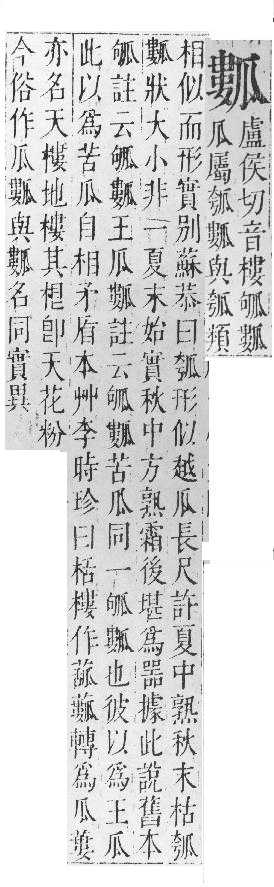 𤬏
盧侯切音樓𤬏
瓜屬瓠𤬏與瓠類
相似而形實別蘇恭曰瓠形似越瓜長尺許夏中熟秋末枯瓠
𤬏狀大小非一夏末始實秋中方熟霜後堪爲器據此說舊本
註云𤬏王瓜𤬏註云𤬏苦瓜同一𤬏也彼以爲王瓜
此以爲苦瓜自相矛盾本艸李時珍曰栝樓作𤬏轉爲瓜蔞
亦名天樓地樓其根卽天花粉
今俗作瓜𤬏與𤬏名同實異